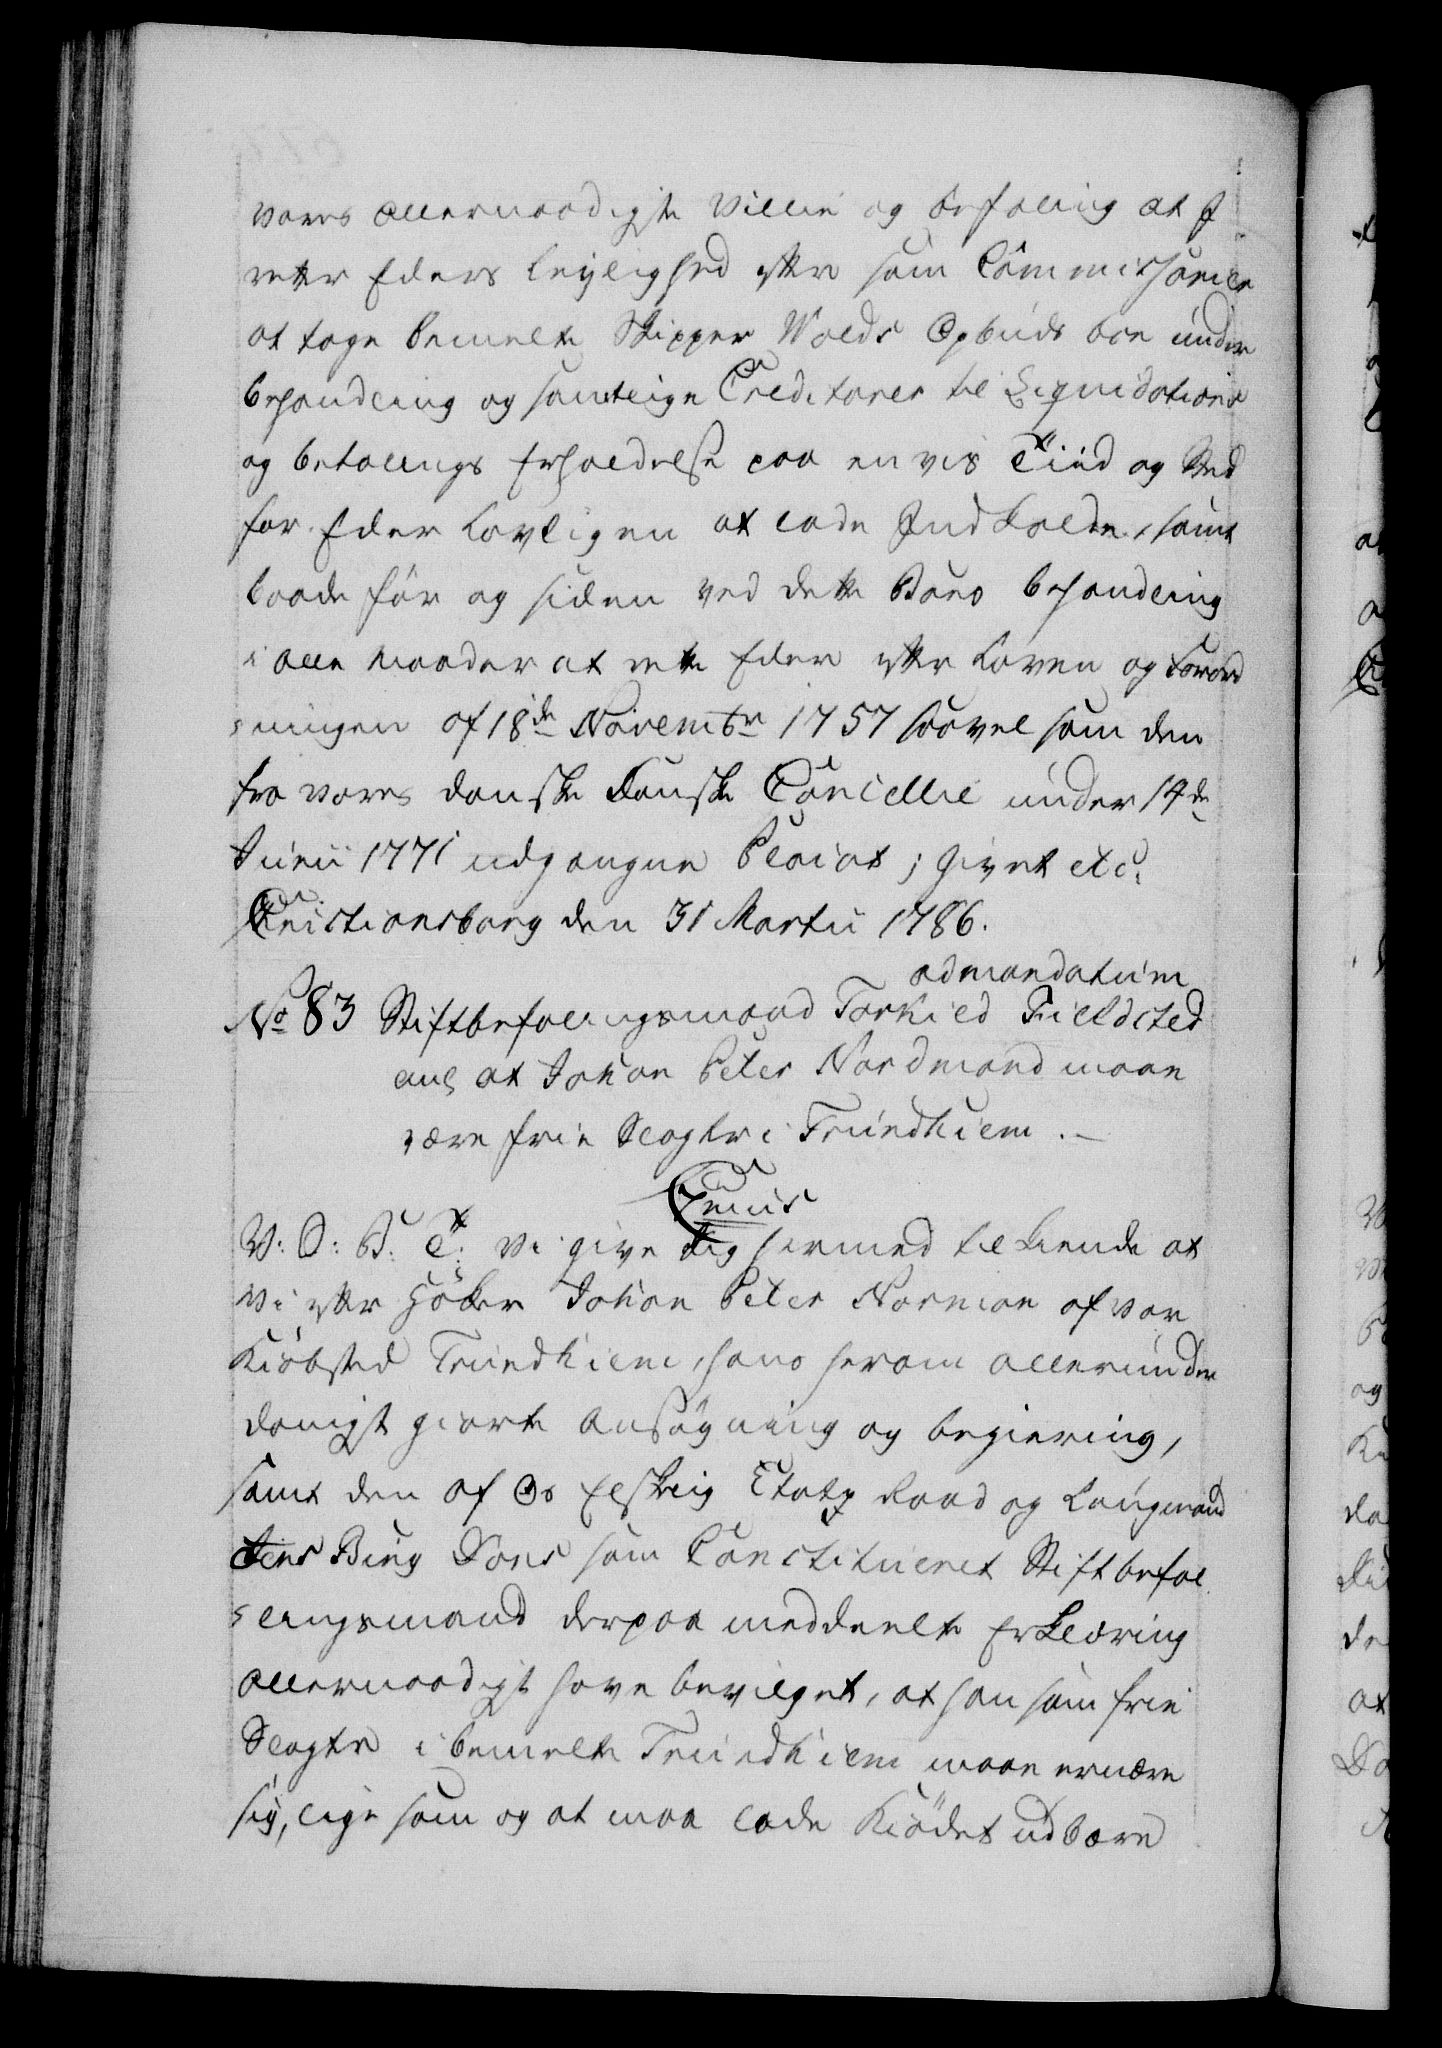 vores allernaadigste Villie og Befaling at J
retter Eders Leylighed efter som Commissarier
at tage bemelte Skipper Wolds Opbuds boe under
behandling og samtlige Creditorer til Liquidations
og betalings Erholdelse paa en vis Tiid og Sted
for Eder Lovligen at lade Indkalde, samt
baade før og siden ved dette Boes behandling
i alle Maader at rette Eder efter Loven og Forord
ningen af 18de Novembr 1757 saavel som den
fra vores danske Danske Cancellie under 14de
Junii 1771 udgangne Placat; Givet etc.
Christiansborg den 31 Martii 1786.
admandatum
No 83 Stiftbefalingsmand Torkild Fieldsted
ang at Johan Peter Nordmand maae
være frie Slagter i Trundhiem. —
Genus
V: S: B: T: Vi give dig hermed tilkiende at
Vi efter Høker Johan Peter Norman af vor
Kiøbsted Trundhiem, hans herom allerunder
danigst giorte Ansøgning og begiering,
samt den af Os Elskelig Etatz Raad og Laugmand
Jens Bing Dons som Constitueret Stiftbefal
lingsmand derpaa meddeelte Erklæring
allernaadigst have bevilget, at han som frie
Slagter i bemelte Trundhiem maae ernære
sig, lige som og at maa lade Kiødet udbære